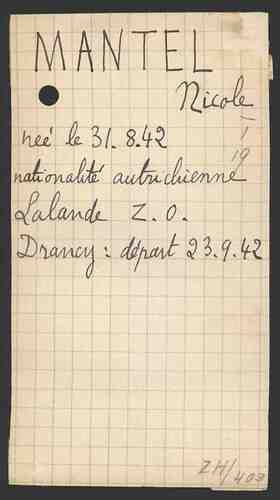 MANTEL
Nicole
neé le 31. 8. 42
nationalité autrichienne
Lalande Z. O.
Drancy : départ 23.9.42
ZH/403